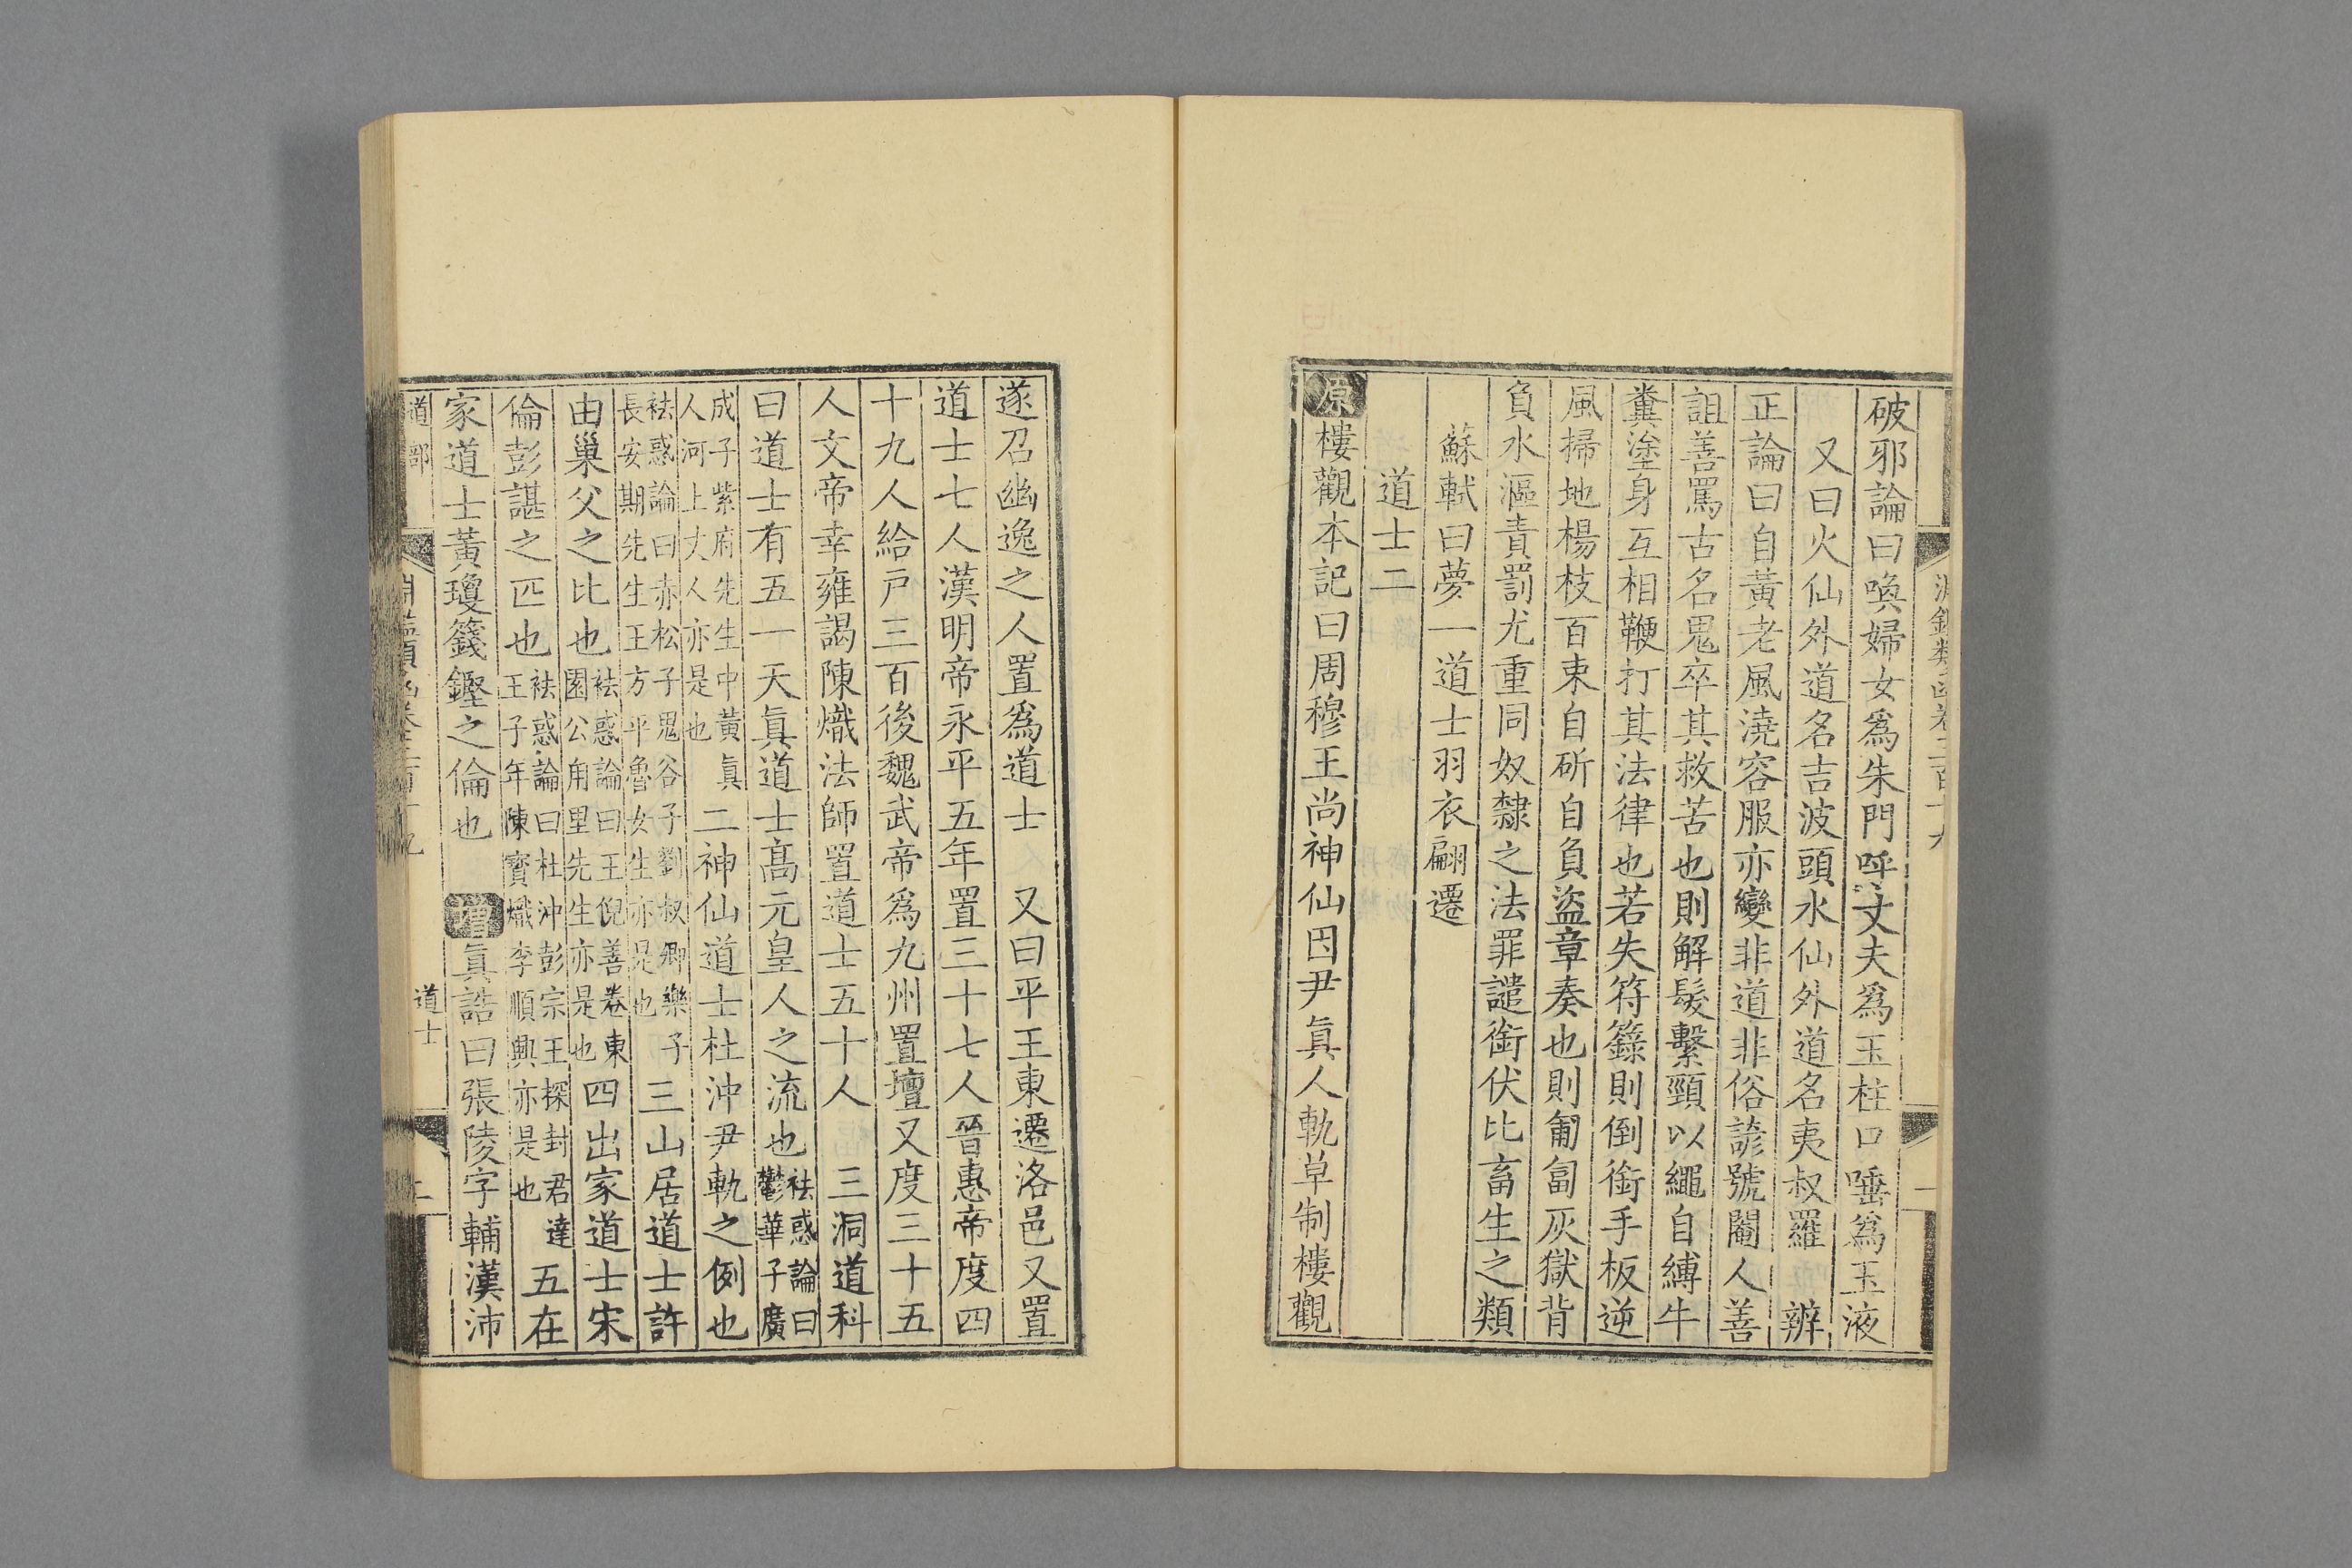 破邪論曰喚婦女爲朱門呼丈夫爲玉柱口唾爲玉液
又曰火仙外道名吉波頭水仙外道名夷叔羅 辨
正論曰自黃老風澆容服亦變非道非俗諺號閹人善
詛善罵古名鬼卒其救苦也則解髮繫頸以繩自縛牛
糞塗身互相鞭打其法律也若失符籙則倒銜手板逆
風掃地楊枝百束自斫自負盜章奏也則匍匐灰獄背
負水漚責罰尤重同奴隸之法罪譴銜伏比畜生之類
蘇軾曰夢一道士羽衣翩遷
道士二
原樓觀本記曰周穆王尚神仙因尹眞人軌草制樓觀
遂召幽逸之人置爲道士 又曰平王東遷洛邑又置
道士七人漢明帝永平五年置三十七人晉惠帝度四
十九人給戸三百後魏武帝爲九州置壇又度三十五
人文帝幸雍謁陳熾法師置道士五十人 三洞道科
曰道士有五一天眞道士高元皇人之流也袪惑論曰鬱華子廣
成子紫府先生中黃眞人河上丈人亦是也二神仙道士杜沖尹軌之例也
袪惑論曰赤松子鬼谷子劉叔卿樂子長安期先生王方平魯女生亦是也三山居道士許
由巢父之比也袪惑論曰王倪善卷東園公甪里先生亦是也四出家道士宋
倫彭諶之匹也袪惑論曰杜沖彭宗王探封君達王子年陳寶熾李順興亦是也五在
家道士黃瓊籛鏗之倫也 增眞誥曰張陵字輔漢沛
道部 淵鑑類函卷三百十九 道士 二